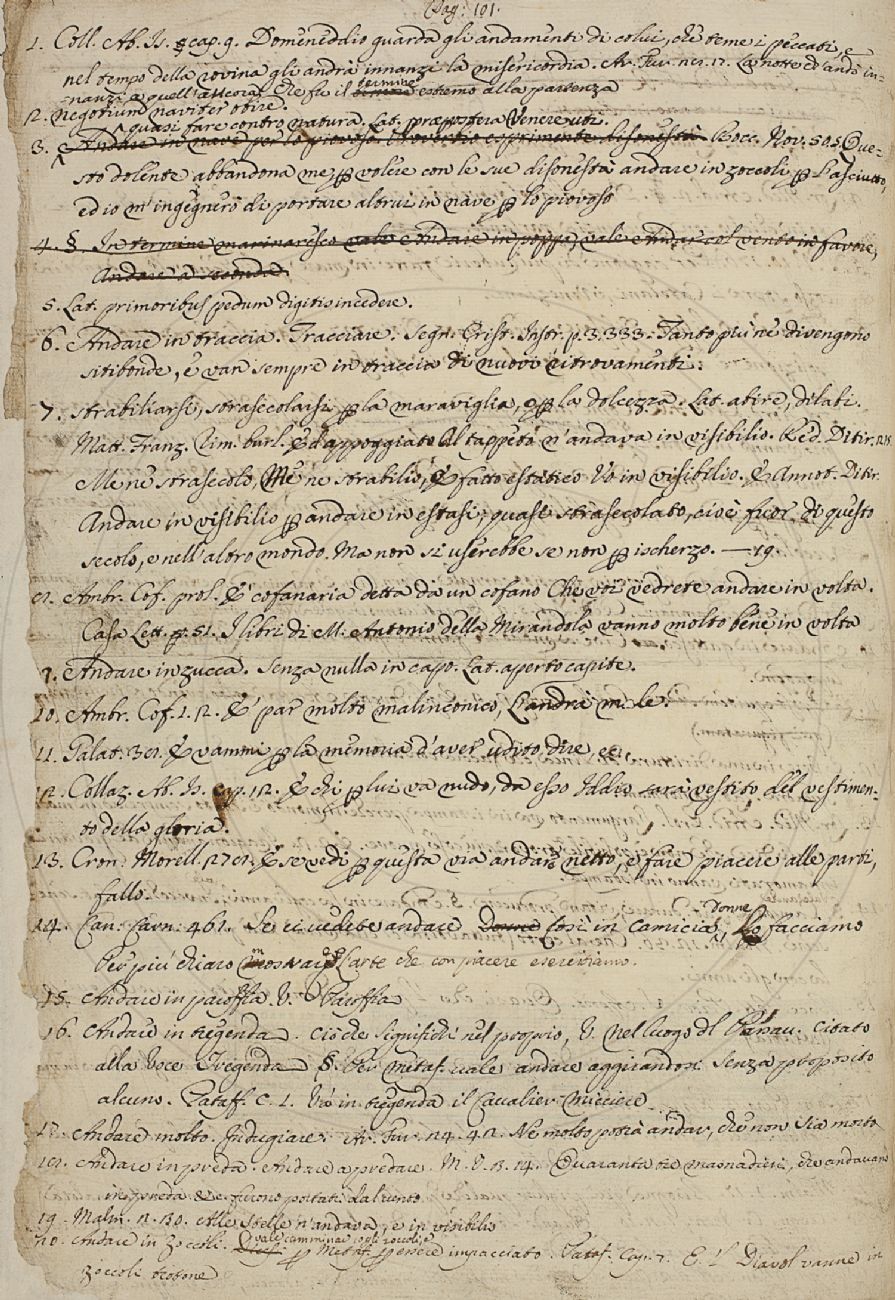 Pag: 101.
1. Coll. Ab. Is. cap. 9. Domeneddio guarda gli andamenti di colui, che teme i peccati, e
nel tempo della rovina gli andrà innanzi la misericordia. Ar. Fur. La notte ch'andò in-
nanzi a quell'aurora, Che fu il termine estremo alla partenza
2. Negotium naviter obire.
quasi fare contro natura. Lat. præpostera Venere uti.
3. Andare in nave per lo piovoso. Proverbio esprimente disonestà Bocc. Nov. 50. 5. Que-
sto dolente abbandona me, p volere con le sue disonestà andare in zoccoli p l'asciutto,
ed io m'ingegnerò di portare altrui in nave p lo piovoso
4. §. In termine marinaresco Andare in poppa, vale Andar col vento in favore,
Andare a seconda.
5. Lat. primoribus pedum digitis incedere.
6. Andare in traccia. Tracciare. Segn. Crist. Instr. p. 3. 333. Tanto più ne divengono
sitibonde, e van sempre in traccia di nuovi ritrovamenti.
7. strabiliarsi, strasecolarsi p la maraviglia, o p la dolcezza. Lat. abire, dilabi.
Matt. Franz. Rim. burl. E d'appoggiato Al tappeto n'andava in visibilio. Red. Ditir.
Me ne strasecolo, Me ne strabilio, E fatto estatico Vo in visibilio. E Annot. Ditir.
Andare in visibilio p andare in estasi, quasi strasecolato, cioè fuor di questo
secolo, e nell'altro mondo. Ma non si userebbe se non p ischerzo. — 19.
8. Ambr. Cof. prol. E cofanaria detta da un cofano Che voi vedrete andare in volta.
Casa Lett. p. 51. I libri di M. Antonio della Mirandola vanno molto bene in volta
9. Andare in zucca. Senza nulla in capo. Lat. aperto capite.
10. Ambr. Cof. 1. 2. E' par molto malinconico, L'andrà male.
11. Galat. 38. E vammi p la memoria d'aver udito dire, ec.
12. Collaz. Ab. Is. cap. 12. E chi p lui va nudo, da esso Iddio sarà vestito del vestimen-
to della gloria.
13. Cron. Morell. 278. E se vedi p questa via andare netto, e fare piacere alle parti,
fallo.
14. Can: Carn: 461. Se ci vedete andare Donne Così in Camicia, Donne, Lo facciamo
Per più chiaro mostrarve L'arte che con piacere esercitiamo.
15. Andare in paroffia. V. Paroffia
16. Andare in tregenda. ciò che significhi nel proprio, V. nel luogo dl Passav. citato
alla Voce Tregenda §. Per metaf. vale andare aggirandosi senza proposito
alcuno. Pataff. C. 1. Va in tregenda il Cavalier
17. Andare molto. Indugiare. Ar. Fur. 24. 42. Ne molto potrà andar, che non sia morto
18. Andare in preda. Andare a predare. M. V. 3. 14. Quaranta tre masnadieri, che andavano
in preda furono portati dal vento
19. Malm. 2. 30. Alle stelle n'andava, e in visibilio
vale camminar cogli zoccoli, e
20. Andare in zoccoli. p Metaf. p essere impacciato. Pataf. Cap. 7. E 'l Diavol vanne in
zoccoli